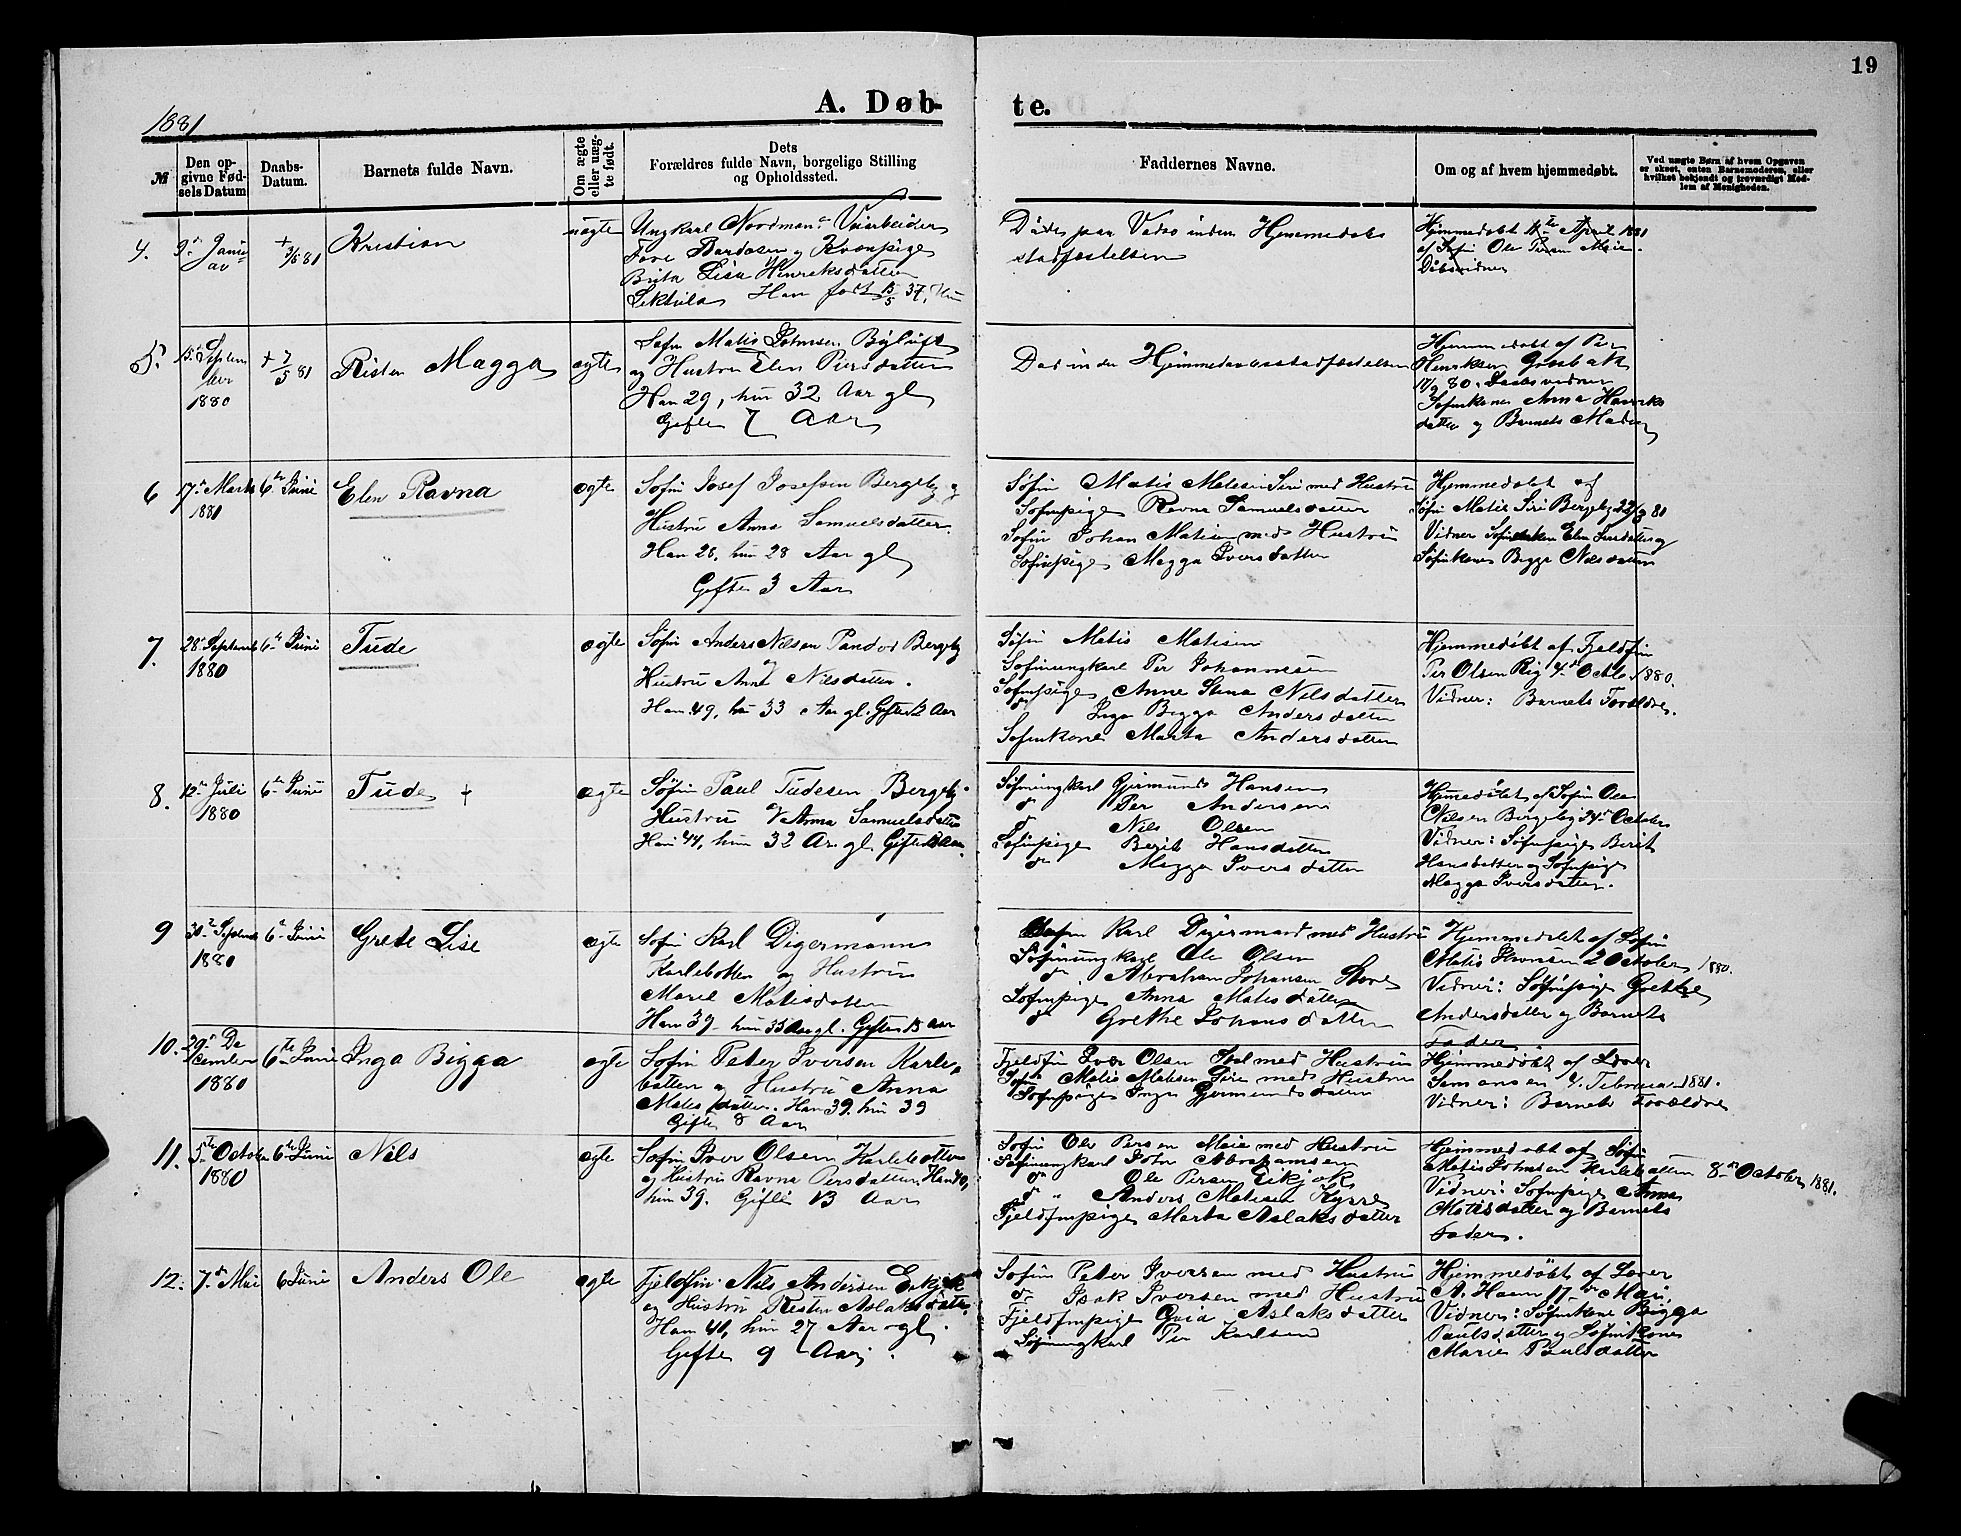 19
A. Døb-
te.
1881
№
Den op-
givne Fød-
sels Datum
Daabs-
Datum.
Barnets fulde Navn.
Om ægte
eller uæg-
te født.
Dets
Forældres fulde Navn, borgelige Stilling
og Opholdssted.
Faddernes Navne.
Om og af hvem hjemmedøbt.
Ved uægte Børn af hvem Opgaven
er skeet, enten Barnemoderen, eller
hvilket bekjendt og troværdigt Med-
lem af Menigheden.
4.
9de Janu-
ar
+
3/5 81
Kristian
uægte
Ungkarl Nordmand
Tore Bardosen og Kvænpige
Brita Lisa Henriksdatter
Han født 15/5 37, Hun
Døde paa Vadsø inden Hjemmedaabs
stadfæstelsen
Hjemmedøbt 11te April 1881
af Søfin Ole Persen Maie
Døbsvidner
5.
15de Septem
ber
1880
+ 7/5 81
Risten Magga
ægte
Søfin Matis Johnsen
og Hustru Elen Persdatter
Han 29, hun 32 Aar gl
Gifte 7 Aar
Død inden Hjemmedaabsstadfæstelsen
Hjemmedøbt af Per
Henriksen Grosbak
17/9 80. Daabsvidner
Søfinkone Anna Henriks
datter og Barnets Moder
6
17de Marts
1881
6te Juni
Elen Ravna
ægte
Søfin Josef Josefsen Bergeby og
Hustru Anna Samuelsdatter.
Han 28, hun 28 Aar gl
Gifte 3 Aar
Søfin Matis Matisen Siri med Hustru
Søfinpige Ravna Samuelsdatter
Søfin Johan Matisen med Hustru
Søfinpige Magga Iversdatter
Hjemmedøbt af
Søfin Matis Siri Bergeby 22/3 81
Vidner Søfinenken Elen og
Søfinkone Bigga Nilsdatter
7.
28de Septemb
1880
6te Juni
Tude
ægte
Søfin Anders Nilsen Pandor Bergeby
og
Hustru Anne Nilsdatter.
Han 49, hun 33 Aar gl. Gifte Aar
Søfin Matis Matisen
Søfinungkarl Per Johannesen
Søfinpige Anne Stina Nilsdatter
do Inga Bigga Andersdatter
Søfinkone Marta Andersdatter
Hjemmedøbt af Fjeldfin
Per Olsen Rig 4de Octb. 1880.
Vidner: Barnets Forældre.
8.
12te Juli
1880
6te Juni
Tude +
ægte
Søfin Paul Tudesen Bergeby.
Hustru Anna Samuelsdatter
Han 44, hun 32 Ar gl. Gifte Aar.
Søfinungkarl Gjermund Hansen
do Per Andersen
do Nils Olsen
Søfinpige Berit Hansdatter
do Magga Iversdatter
Hjemmedøbt af Søfin Ole
Nilsen Bergeby October
Vidner: Søfinpige Berit
Hansdatter og Søfinpige
Magga Iversdatter.
9
30te Septemb
1880
6te Juni
Grete Lise
ægte
Søfin Karl Digermann
Karlebotten og Hustru
Marie Matisdatter
Han 39 hun 33 Aar gl. Gifte 13 Aar
Søfin Karl Digermand med Hustru
Søfinungkarl Ole Olsen
do Abraham Johansen
Søfinpige Anna Matisdatter
do Grethe Johansdatter
Hjemmedøbt af Søfin
Matis Johnsen 2 October 1880.
Vidner: Søfinpige Grethe
Andersdatter og Barnets
Fader
10.
29de De
cember
1880
6te Juni
Inga Bigga
ægte
Søfin Peter Iversen Karle-
botten og Hustru Anna
Matisdatter. Han 39. hun 39
Gifte 8 Aar
Fjeldfin Iver Olsen med Hustru
Søfin Matis Matisen Siri med Hustru
Søfinpige Inga Gjermundsdatter
Hjemmedøbt af Lærer
Februar 1881.
Vidner: Barnets Forældre
11.
5te Octobe
1880
6te Juni
Nils
ægte
Søfin Iver Olsen Karlebotten
og Hustru Ravna Persdatter, Han 40,
hun 39. Gifte 13 Aar
Søfin Ole Persen Maie med Hustru
Søfinungkarl John Abrahamsen
do Ole Persen
do " Anders Matisen
Fjeldfinpige Marta Aslaksdatter
Hjemmedøbt af Søfin
Matis Johnsen Karlebotten 8de October 1881.
Vidner: Søfinpige Anna
Matisdatter og Barnets
Fader.
12.
7de Mai
6 Juni
Anders Ole
ægte
Fjeldfin Nils Andersen
og Hustru Risten Aslaksdatter
Han 40, hun 27 Aar gl.
Gifte 9 Aar.
Søfin Peter Iversen med Hustru
do Isak Iversen med Hustru
Fjeldfinpige Aslaksdatter
Søfinungkarl Per Karlsen
Hjemmedøbt af Lærer
A. Haam 17de Mai
Vidner: Søfinkone Bigga
Paulsdatter og Søfinkone
Marie Paulsdatter